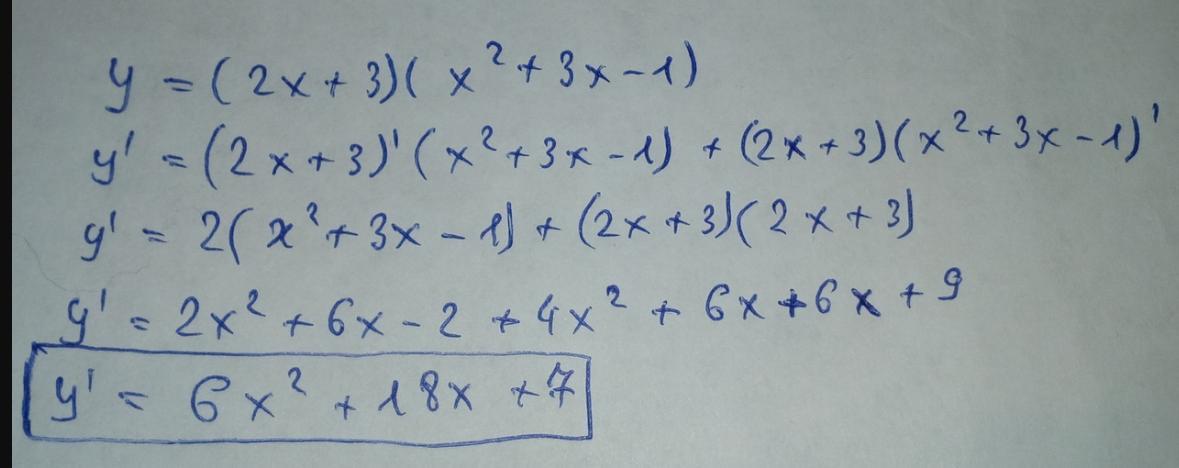 y = (2x + 3)(x² + 3x - 1)
y' = (2x + 3)'(x² + 3x - 1) + (2x + 3)(x² + 3x - 1)'
y' = 2(x² + 3x - 1) + (2x + 3)(2x + 3)
y' = 2x² + 6x - 2 + 4x² + 6x + 6x + 9
y' = 6x² + 18x + 7